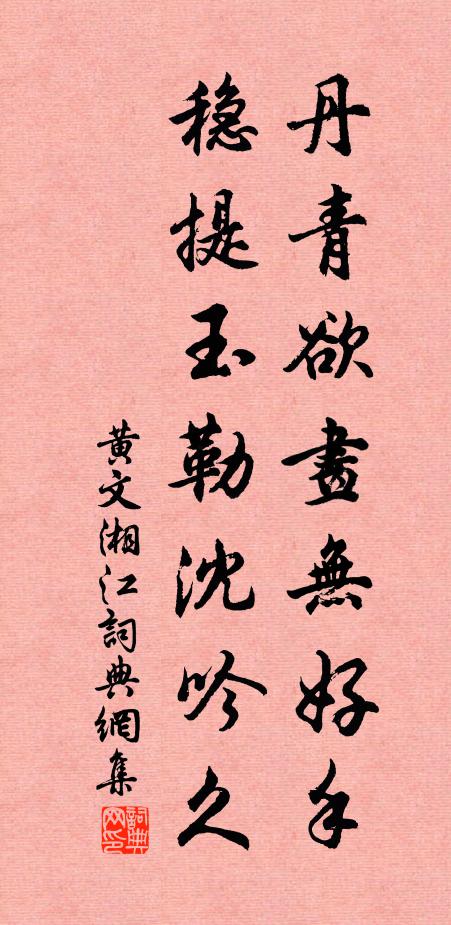 丹青欲畫無好手
穩提玉勒沈吟久
黄文湘江詞典網集
詞典網印